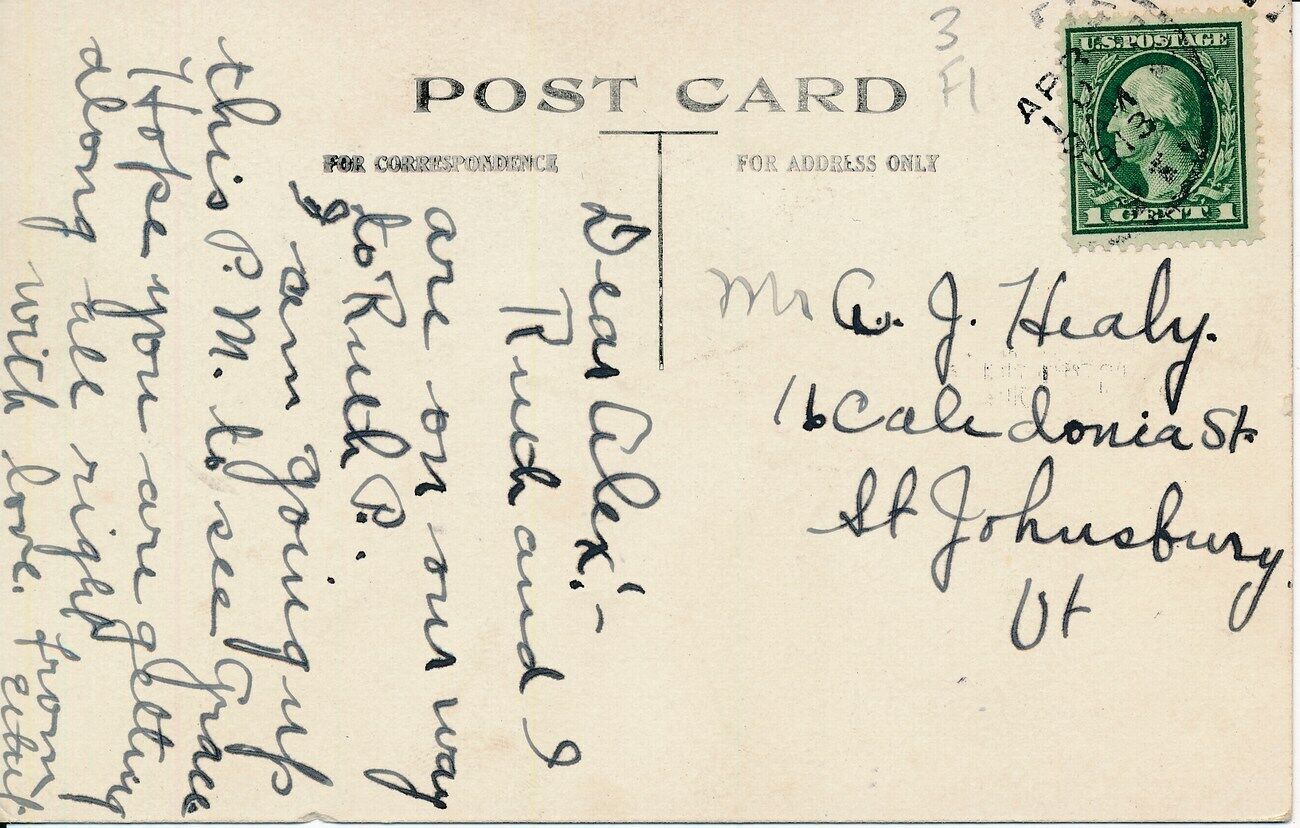 POST CARD
FOR CORRESPONDENCE
FOR ADDRESS ONLY
3
Fl
U.S. POSTAGE
1 CENT 1
APR
Dear Alex!-
Ruth and I
are on our way
to Ruth P.
I am going up
this P.M. to see Grace
Hope you are getting
along all right
with love. from
Mr A. J. Healy.
16 Caledonia St.
St Johnsbury
Vt